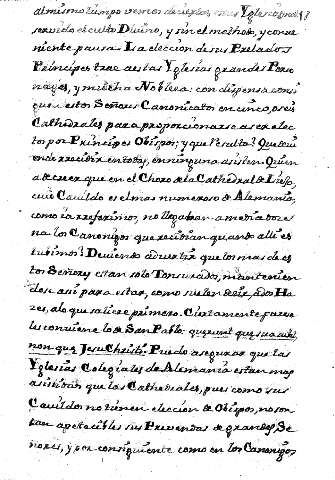 al mismo tiempo vemos desiertas, estas Yglesias, mal
servido el culto Divino, y sin el methodo, y conve
niente pausa. La eleccion de sus Prelados
Principes trae a estas Yglesias grandes Perso
nages, y mucha Nobleza: con dispensa consi
guen estos Señores Canonicatos en cinco, o seis
Cathedrales para proporcionarse a ser elec
tos por Principes Obispos; y que resulta? Que tenien
do de recidir en todas, en ninguna asisten. Quien
a de creer que en el Choro de la Cathedral de Lieja,
cuio Cavildo es el mas numeroso de Alemania,
como ia referimos, no llegaban a media doze
na los Canonigos que recidian quando alli es
tubimos? Deviendo advertir que los mas de es
tos Señores estan solo Tonsurados, mantenien
dose asi para estar, como suelen decir, a dos Ha
zes, a lo que saliere primero. Ciertamente a estos
les conviene lo de San Pablo: quærunt quæ sua sunt,
non quæ Jesu Christi. Puedo asegurar que las
Yglesias Colegiales de Alemania estan mas
asistidas que las Cathedrales, pues como sus
Cavildos no tienen eleccion de Obispo, no son
tan apetecibles sus Prevendas de grandes Se
ñores, y por consiguiente como en los Canonigos